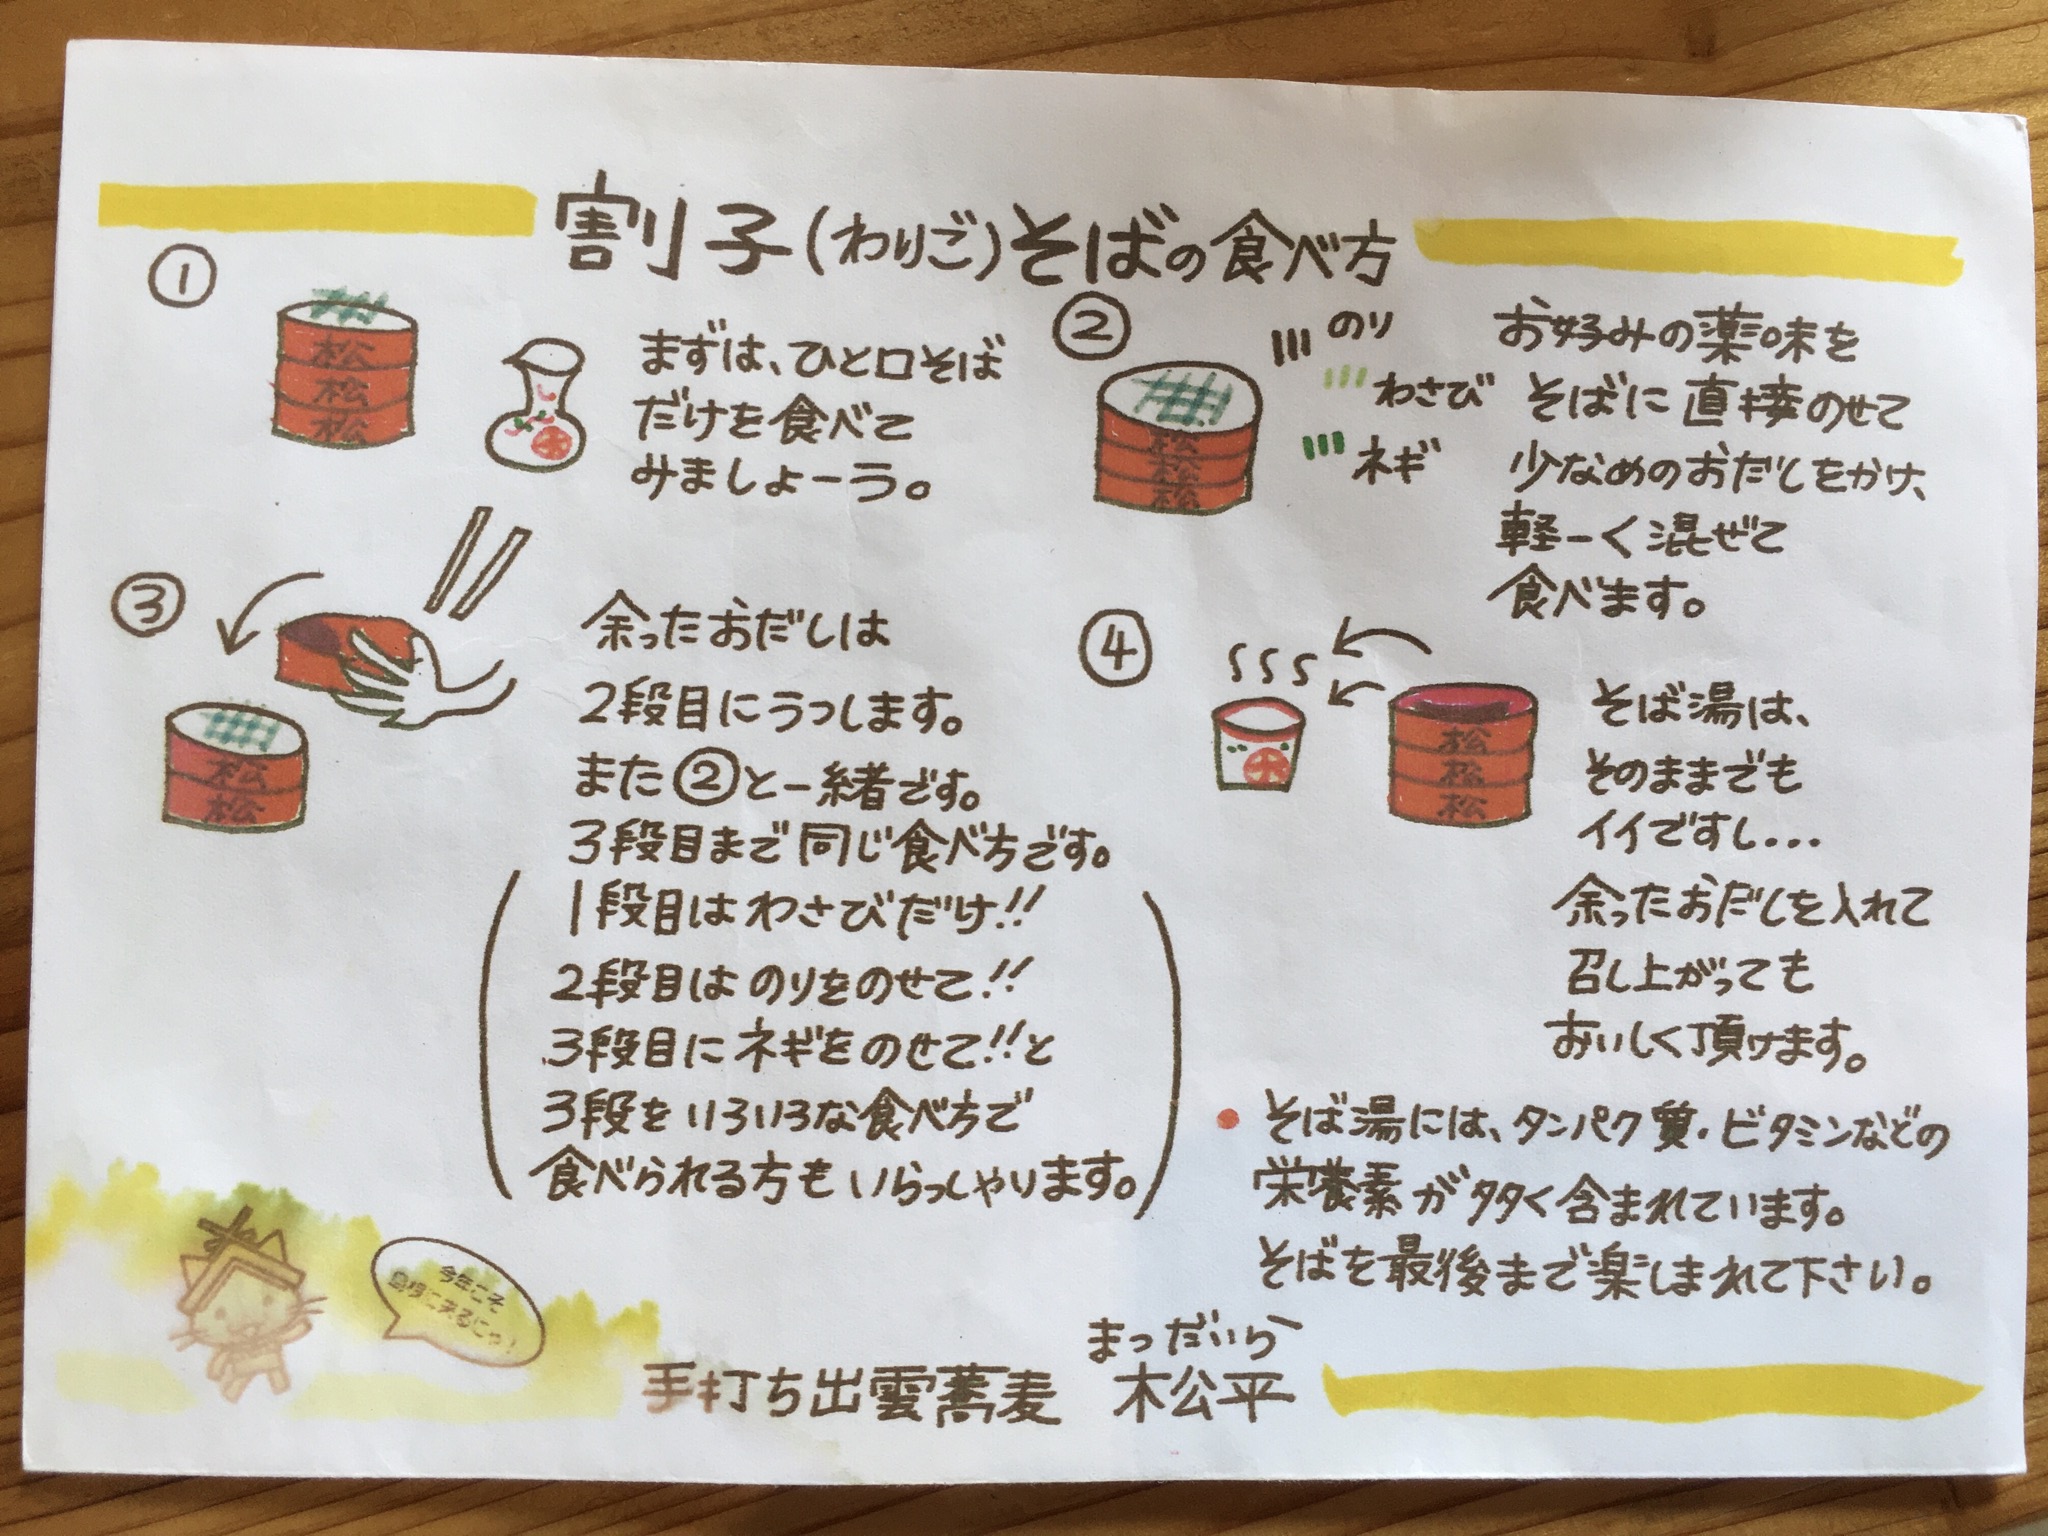 割子(わりご)そばの食べ方
①
松
松
松
まずは、ひと口そば
だけを食べて
みましょーう。
②
松
松
松
のり
わさび
ネギ
お好みの薬味を
そばに直接のせて
少なめのおだしをかけ、
軽ーく混ぜて
食べます。
③
松
松
余ったおだしは
2段目にうつします。
また②と一緒です。
3段目まで同じ食べ方です。
1段目はわさびだけ!!
2段目はのりをのせて!!
3段目にネギをのせて!!と
3段をいろいろな食べ方で
食べられる方もいらっしゃります。
④
松
松
松
そば湯は、
そのままでも
イイですし...
余ったおだしを入れて
召し上がっても
おいしく頂けます。
• そば湯には、タンパク質・ビタミンなどの
栄養素が多く含まれています。
そばを最後まで楽しまれて下さい。
今年こそ
島根に来るにゃ!
まつだいら
手打ち出雲蕎麦 松平